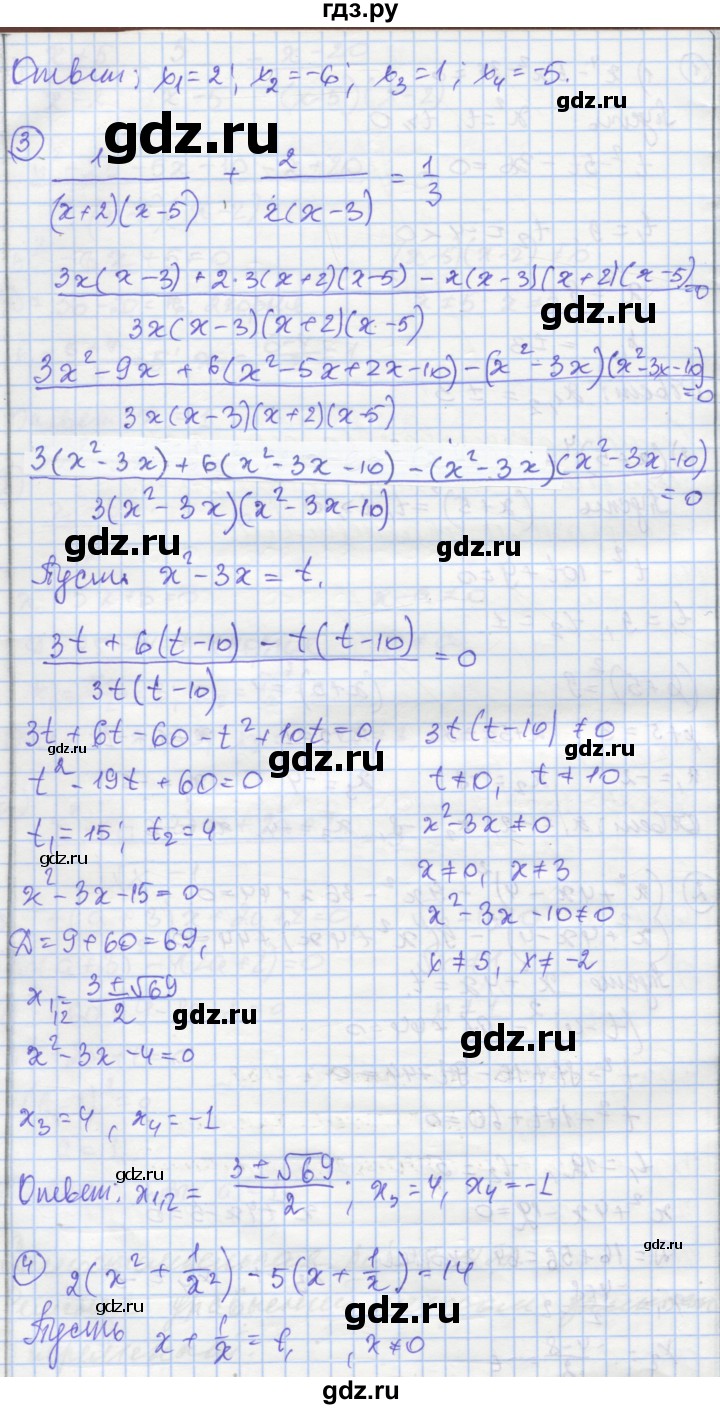 гдз.ру
Ответ: x₁ = 2; x₂ = -6; x₃ = 1; x₄ = -5.
gdz.ru
gdz.ru
③ 1/((x+2)(x-5)) + 2/(x(x-3)) = 1/3
(3x(x-3) + 2·3(x+2)(x-5) - x(x-3)(x+2)(x-5))/(3x(x-3)(x+2)(x-5)) = 0
gdz.ru
(3x² - 9x + 6(x² - 5x + 2x - 10) - (x² - 3x)(x² - 3x - 10))/(3x(x-3)(x+2)(x-5)) = 0
(3(x² - 3x) + 6(x² - 3x - 10) - (x² - 3x)(x² - 3x - 10))/(3(x² - 3x)(x² - 3x - 10)) = 0
gdz.ru
gdz.ru
Пусть x² - 3x = t,
(3t + 6(t-10) - t(t-10))/(3t(t-10)) = 0
3t + 6t - 60 - t² + 10t = 0, 3t(t-10) ≠ 0
gdz.ru
gdz.ru
t² - 19t + 60 = 0 t ≠ 0, t ≠ 10
t₁ = 15; t₂ = 4 x² - 3x ≠ 0
gdz.ru
x² - 3x - 15 = 0 x ≠ 0, x ≠ 3
x² - 3x - 10 ≠ 0
Д = 9 + 60 = 69, x ≠ 5, x ≠ -2
x₁,₂ = (3 ± √69)/2
gdz.ru
gdz.ru
x² - 3x - 4 = 0
x₃ = 4, x₄ = -1
gdz.ru
Ответ: x₁,₂ = (3 ± √69)/2; x₃ = 4, x₄ = -1
gdz.ru
④ 2(x² + 1/x²) - 5(x + 1/x) = 14
gdz.ru
gdz.ru
Пусть x + 1/x = t, , x ≠ 0
gdz.ru